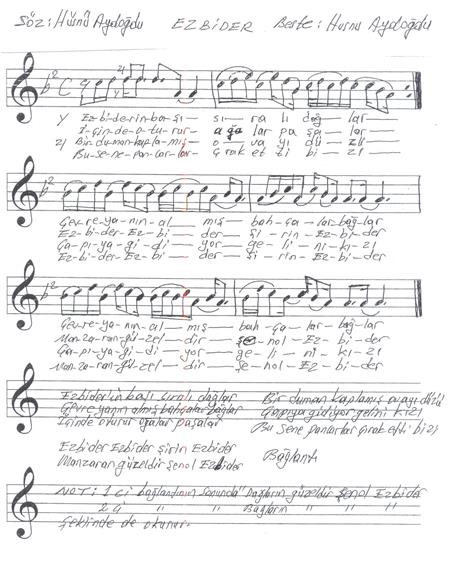 Söz: Hüsnü Aydoğdu EZBİDER Beste: Husnu Aydoğdu
Ez-bi-de-rin-ba-şı — sı — ra lı dağ — lar —
İ-çin-de-o-tu-rur — ağa lar pa şa — lar —
2) Bir-du-man-kap-la-mış — o — va yı dü — zü —
Bu-se-ne-pan-car-lar — çırak et ti bi — zi —
Çev-re-ya-nın-al — mış — bah-ça — lar-bağ-lar
Ez-bi-der-Ez-bi — der — şi — rin — Ez-bi — der
Ga-pı-ya-gi-di — yor — ge-li — ni-kı — zı
Ez-bi-der-Ez-bi — der — şi-rin-Ez-bi-der
Çev-re-ya-nın-al — mış — bah-ça — lar — bağ-lar
Man-za-ran-gü-zel — dir — şe — nol — Ez-bi — der
Ga-pı-ya-gi-di — yor — ge-li — ni — kı — zı
Man-za-ran-güzel — dir — şe-nol — Ez-bi-der
Ezbiderin başı sıralı dağlar Bir duman kaplamış ovayı düzü
Çevre yanın almış bahçalar bağlar Gapıya gidiyor gelini kızı
İçinde oturur ağalar paşalar Bu sene pancarlar çırak etti bizi
Ezbider Ezbider şirin Ezbider
Manzaran güzeldir şenol Ezbider Bağlantı
NOT: 1 ci bağlandının sonunda "Dağların güzeldir şenol Ezbider
2 Ci " " Bağların " " "
Şeklinde de okunur.